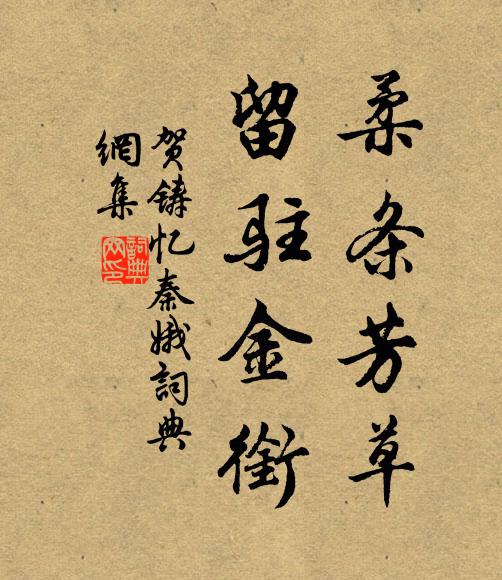 柔条芳草
留驻金衔
贺铸忆秦娥词典
网集
词典网印